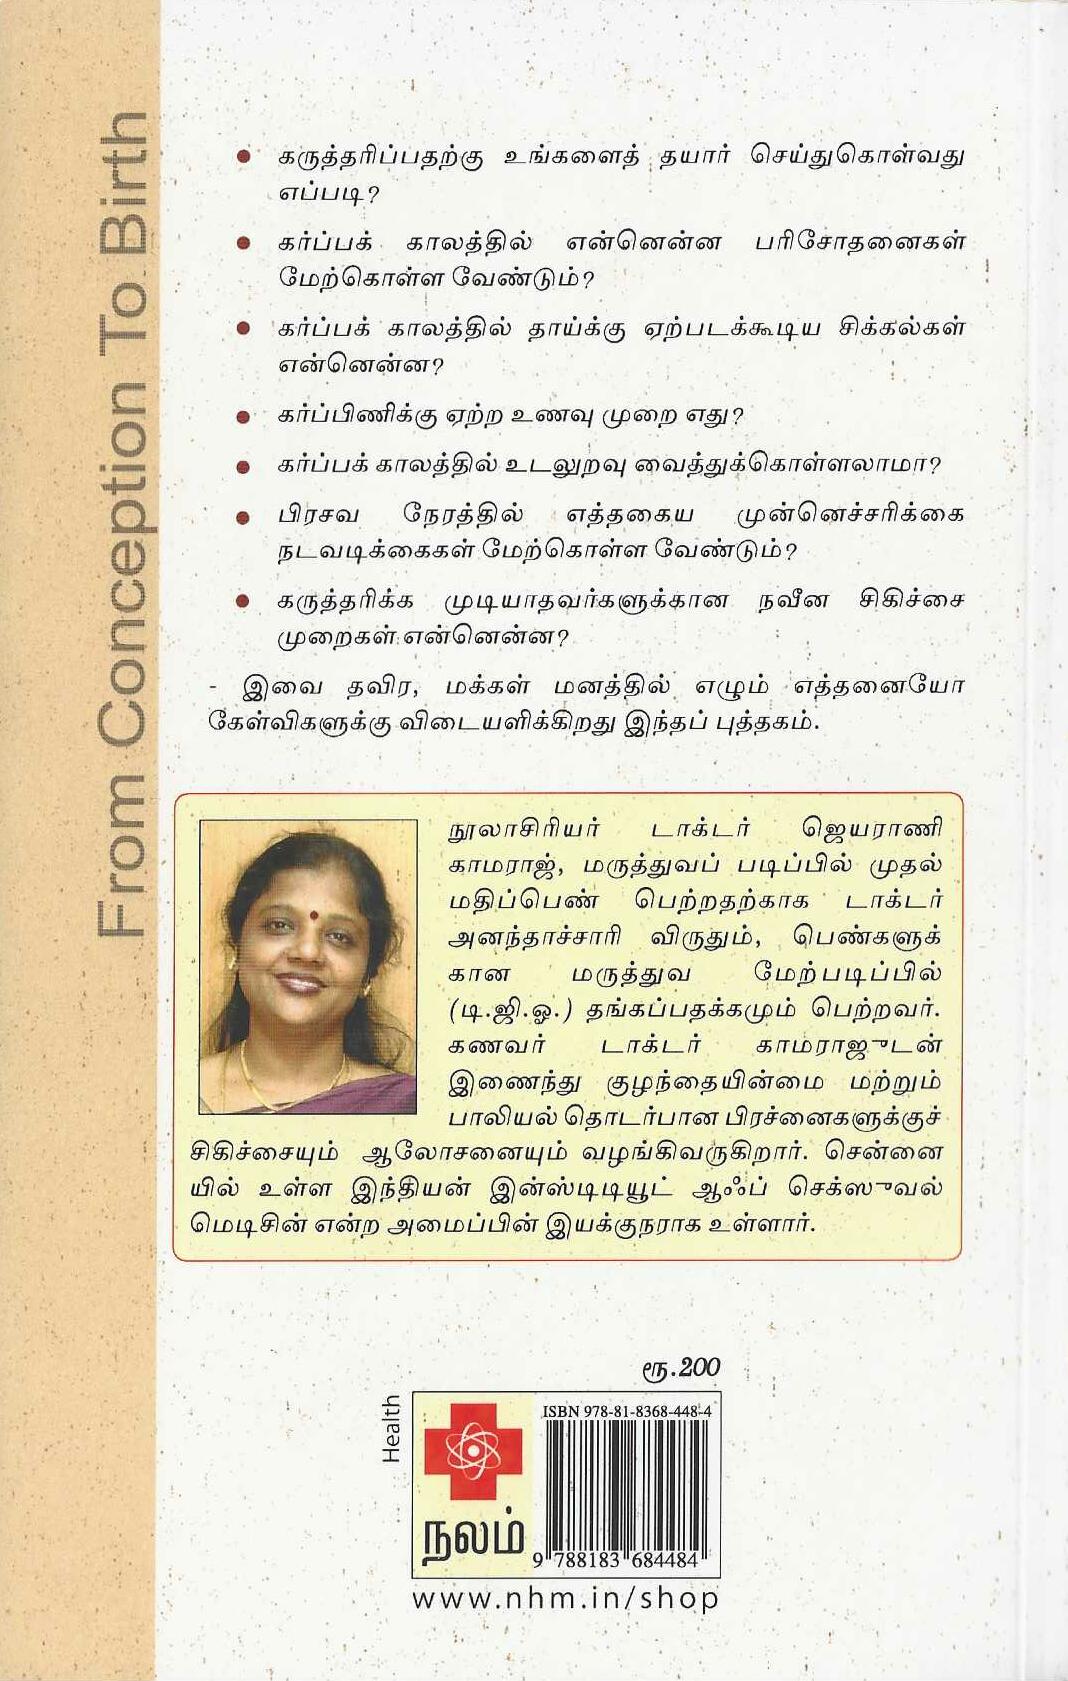 From Conception To Birth
• கருத்தரிப்பதற்கு உங்களைத் தயார் செய்துகொள்வது
எப்படி?
• கர்ப்பக் காலத்தில் என்னென்ன பரிசோதனைகள்
மேற்கொள்ள வேண்டும்?
• கர்ப்பக் காலத்தில் தாய்க்கு ஏற்படக்கூடிய சிக்கல்கள்
என்னென்ன?
• கர்ப்பிணிக்கு ஏற்ற உணவு முறை எது?
• கர்ப்பக் காலத்தில் உடலுறவு வைத்துக்கொள்ளலாமா?
• பிரசவ நேரத்தில் எத்தகைய முன்னெச்சரிக்கை
நடவடிக்கைகள் மேற்கொள்ள வேண்டும்?
• கருத்தரிக்க முடியாதவர்களுக்கான நவீன சிகிச்சை
முறைகள் என்னென்ன?
- இவை தவிர, மக்கள் மனத்தில் எழும் எத்தனையோ
கேள்விகளுக்கு விடையளிக்கிறது இந்தப் புத்தகம்.
நூலாசிரியர் டாக்டர் ஜெயராணி
காமராஜ், மருத்துவப் படிப்பில் முதல்
மதிப்பெண் பெற்றதற்காக டாக்டர்
அனந்தாச்சாரி விருதும், பெண்களுக்
கான மருத்துவ மேற்படிப்பில்
(டி.ஜி.ஓ.) தங்கப்பதக்கமும் பெற்றவர்.
கணவர் டாக்டர் காம்ராஜுடன்
இணைந்து குழந்தையின்மை மற்றும்
பாலியல் தொடர்பான பிரச்னைகளுக்குச்
சிகிச்சையும் ஆலோசனையும் வழங்கிவருகிறார். சென்னை
யில் உள்ள இந்தியன் இன்ஸ்டிடியூட் ஆஃப் செக்ஸுவல்
மெடிசின் என்ற அமைப்பின் இயக்குநராக உள்ளார்.
ரூ.200
Health
ISBN 978-81-8368-448-4
நலம்
9 788183 684484
www.nhm.in/shop